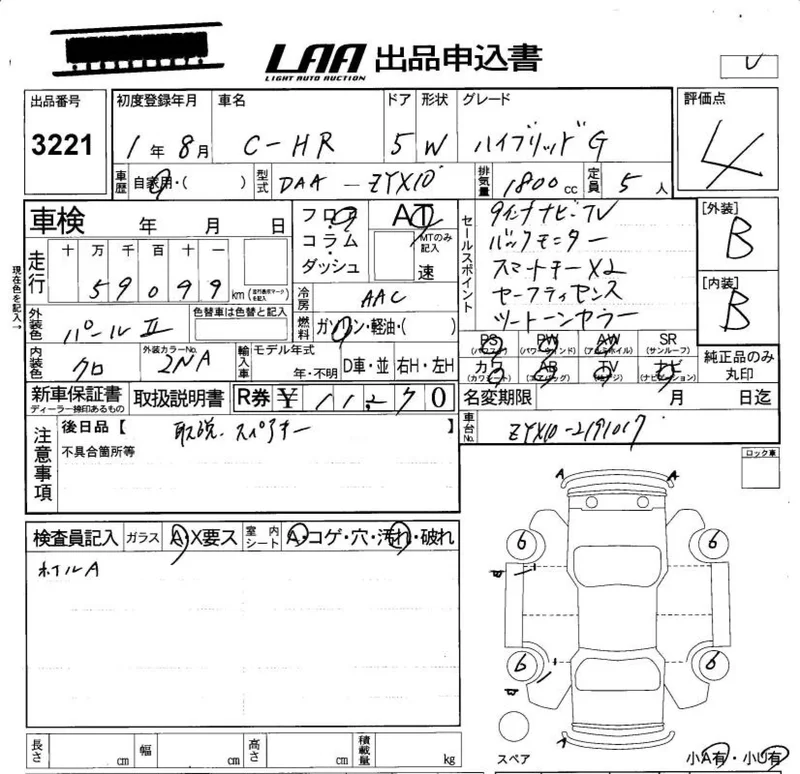 LAA 出品申込書
LIGHT AUTO AUCTION
出品番号 初度登録年月 車名 ドア 形状 グレード 評価点
3221 1年 8月 C-HR 5 W ハイブリッドG 4
車歴 自家用・( ) 型式 DAA-ZYX10 排気量 1800cc 定員 5人
車検 年 月 日 フロア AT セールスポイント 9インチナビ・TV [外装]
走行 十 万 千 百 十 一 コラム・ MTのみ記入 バックモニター B
59099 km ダッシュ 速 スマートキーX2 [内装]
現在色を記入→ 冷房 AAC セーフティセンス B
外装色 パールII 色替車は色替と記入 燃料 ガソリン・軽油・( ) ツートンカラー
内装色 クロ 外装カラーNo. 2NA 輸入車 モデル年式 年・不明 D車・並 右H・左H
PS (パワステ) PW (パワーウインド) AW (アルミホイル) SR (サンルーフ) 純正品のみ丸印
カワ (カワシート) AB (エアバッグ) TV ナビ (ナビゲーション)
新車保証書 ディーラー捺印あるもの 取扱説明書 R券 ¥ 11270 名変期限 月 日迄
注意事項 後日品【 取説.スペアキー 】 車台No. ZYX10-2191017
不具合箇所等 ロック車
検査員記入 ガラス A・X要ス 室内シート A・コゲ・穴・汚れ・破れ
ホイルA
A A
6 6
6 6
A
長さ cm 幅 cm 高さ cm 積載量 kg スペア 小A有・小U有